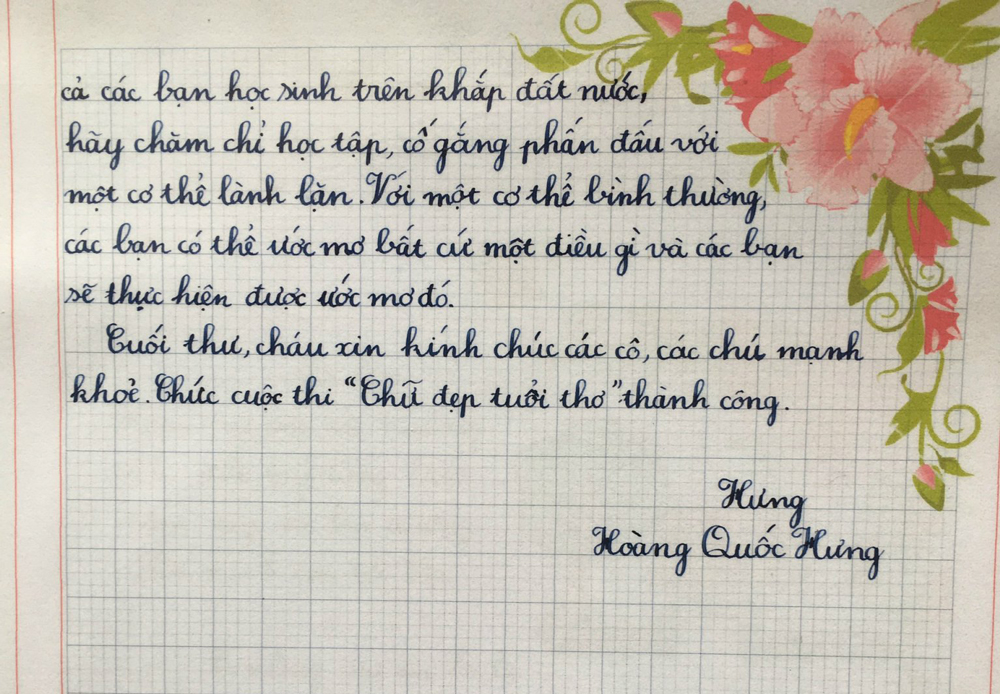 cả các bạn học sinh trên khắp đất nước,
hãy chăm chỉ học tập, cố gắng phấn đấu với
một cơ thể lành lặn. Với một cơ thể bình thường,
các bạn có thể ước mơ bất cứ một điều gì và các bạn
sẽ thực hiện được ước mơ đó.
Cuối thư, cháu xin kính chúc các cô, các chú mạnh
khoẻ. Chúc cuộc thi "Chữ đẹp tuổi thơ" thành công.
Hưng
Hoàng Quốc Hưng